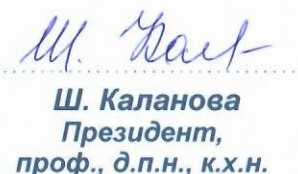 Ш. Кал
Ш. Каланова
Президент,
проф., д.п.н., к.х.н.